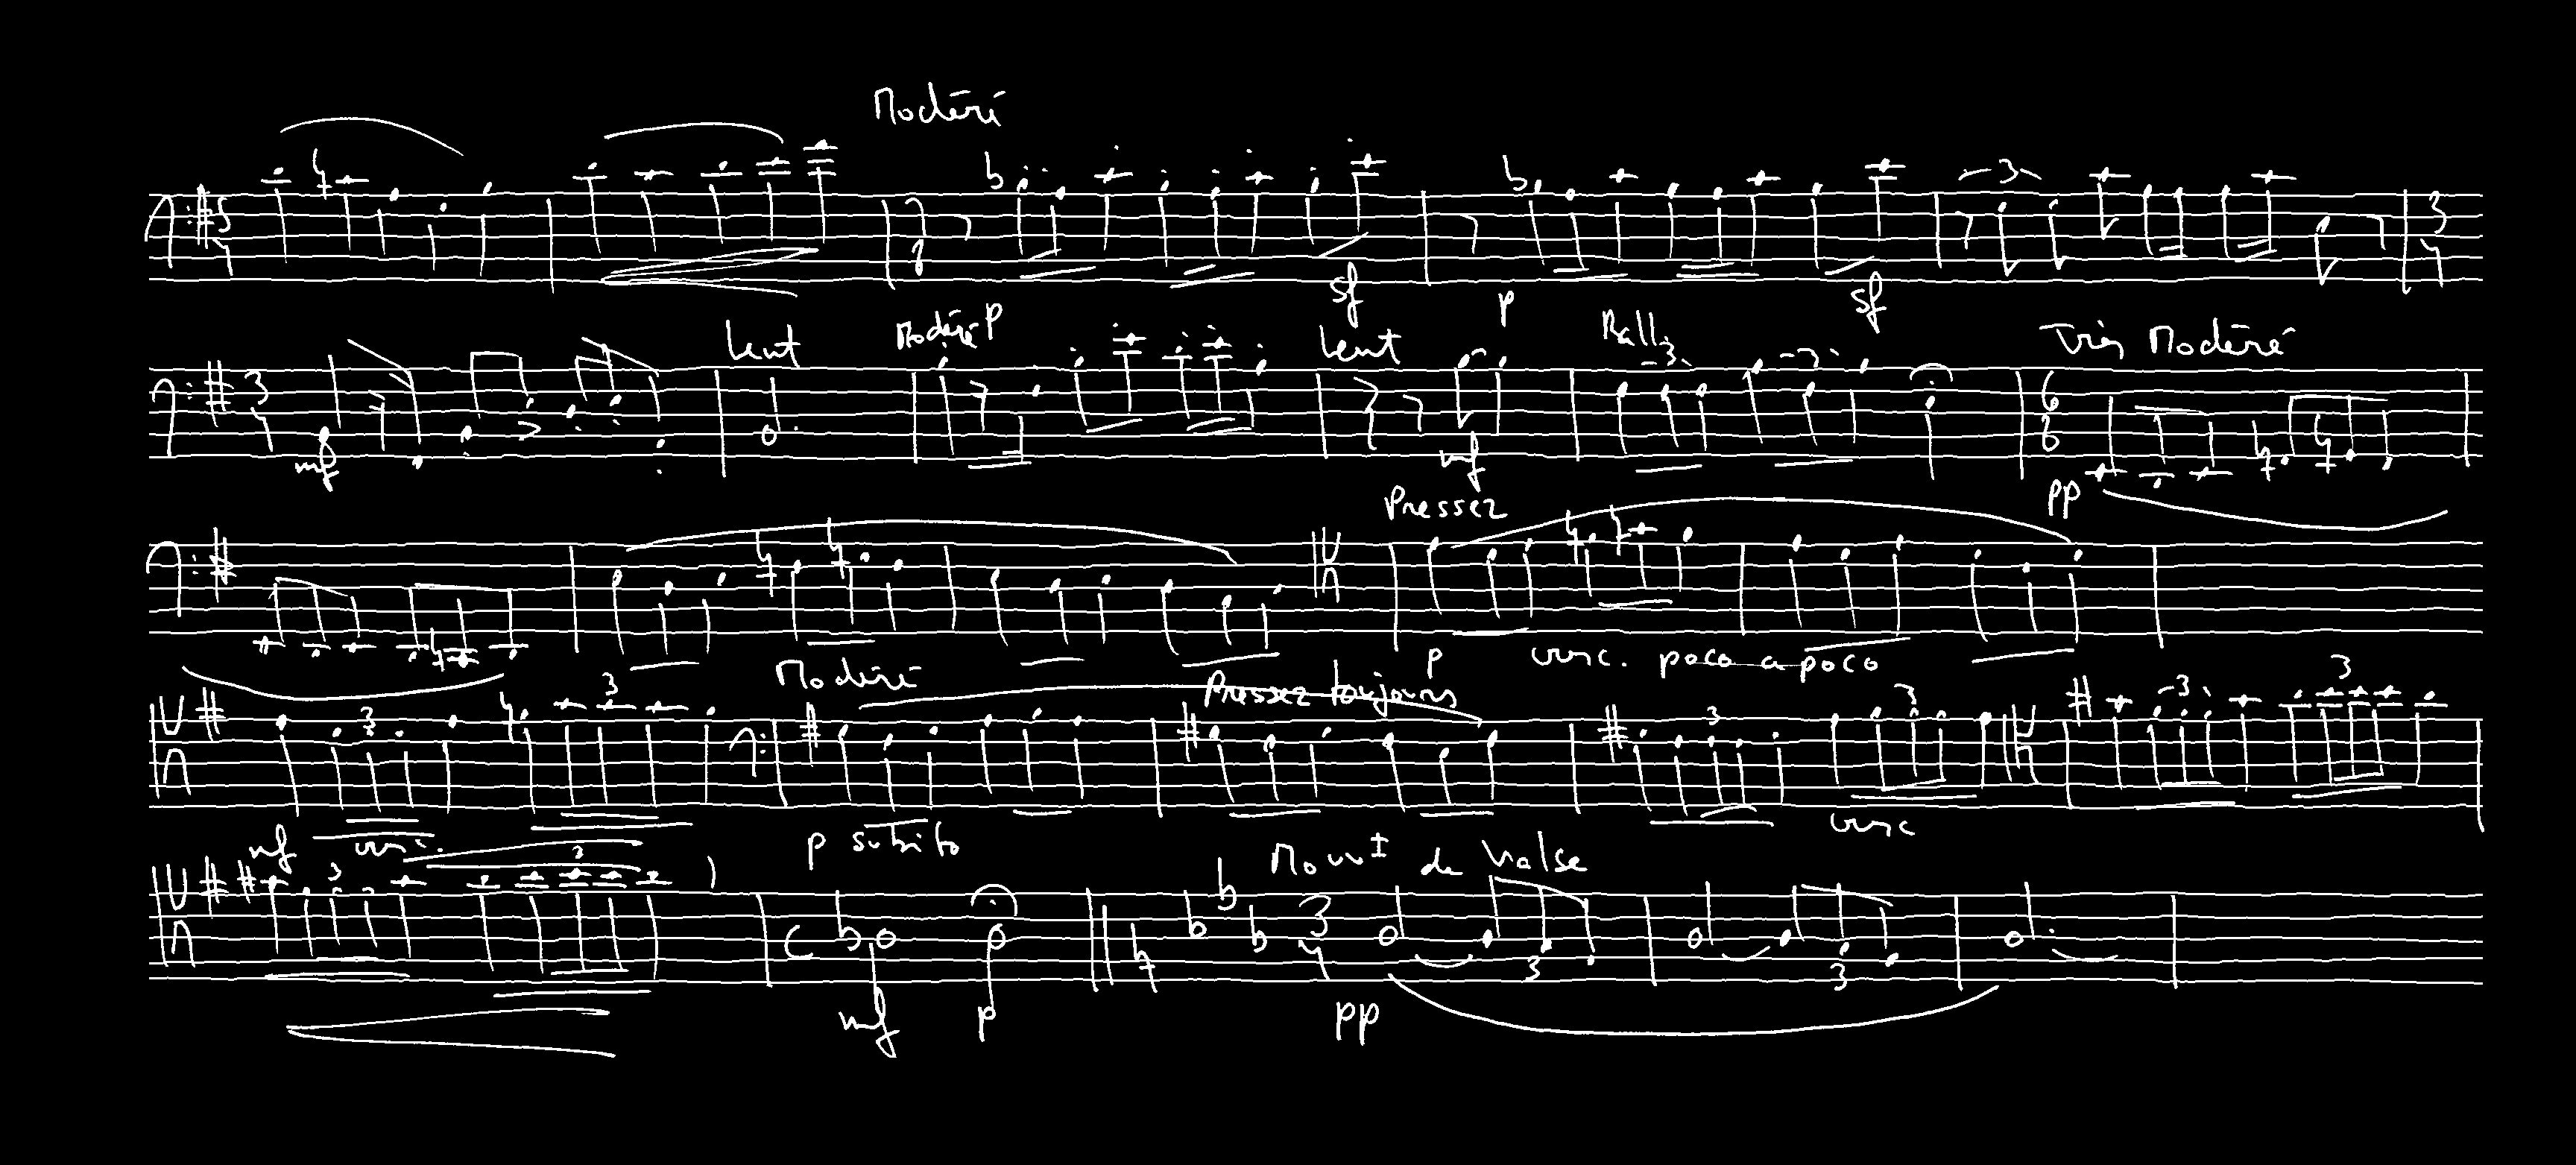 Modéré
3
sf p sf
Lent Modéré p Lent Rall. Très Modéré
3 3
mf mf pp
Pressez
p cresc. poco a poco
Modéré Pressez toujours
3 3 3 3 3 3
mf cresc. p subito cresc
Mouvt de Valse
3 3
3 3
mf p pp